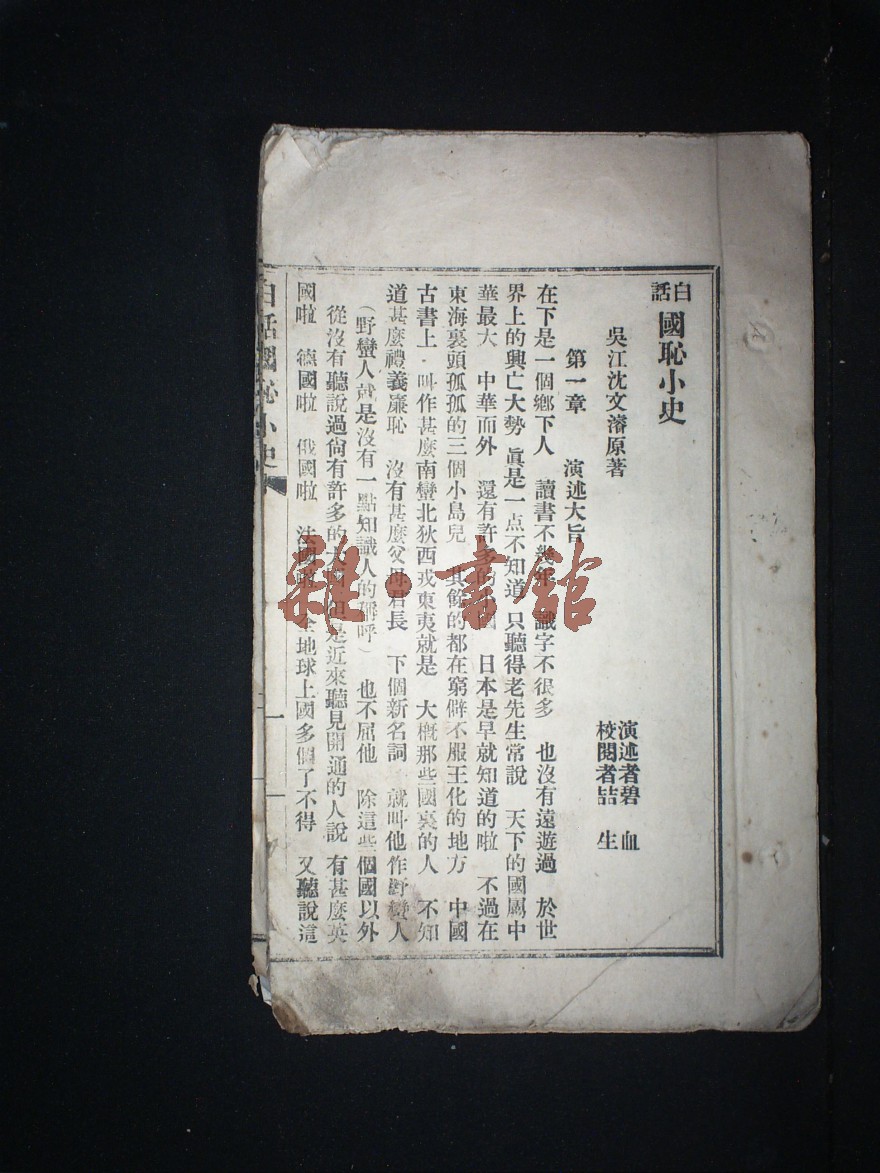 白話國恥小史
吳江沈文濬原著
演述者碧血
校閱者喆生
第一章 演述大旨
在下是一個鄉下人 讀書不幾年 識字不很多 也沒有遠遊過 於世
界上的興亡大勢 眞是一点不知道 只聽得老先生常說 天下的國屬中
華最大 中華而外 還有許多的小國 日本是早就知道的啦 不過在
東海裏頭孤孤的三個小島兒 其餘的都在窮僻不服王化的地方 中國
古書上 叫作甚麽南蠻北狄西戎東夷就是 大槪那些國裏的人 不知
道甚麽禮義廉恥 沒有甚麽父母君長 下個新名詞 就叫他作野蠻人
（野蠻人就是沒有一點知識人的稱呼） 也不屈他 除這些個國以外
從沒有聽說過尙有許多的大國 但是近來聽見開通的人說 有甚麽英
國啦 德國啦 俄國啦 法國啦 全地球上國多個了不得 又聽說這
白話國恥小史
一
雜·書館